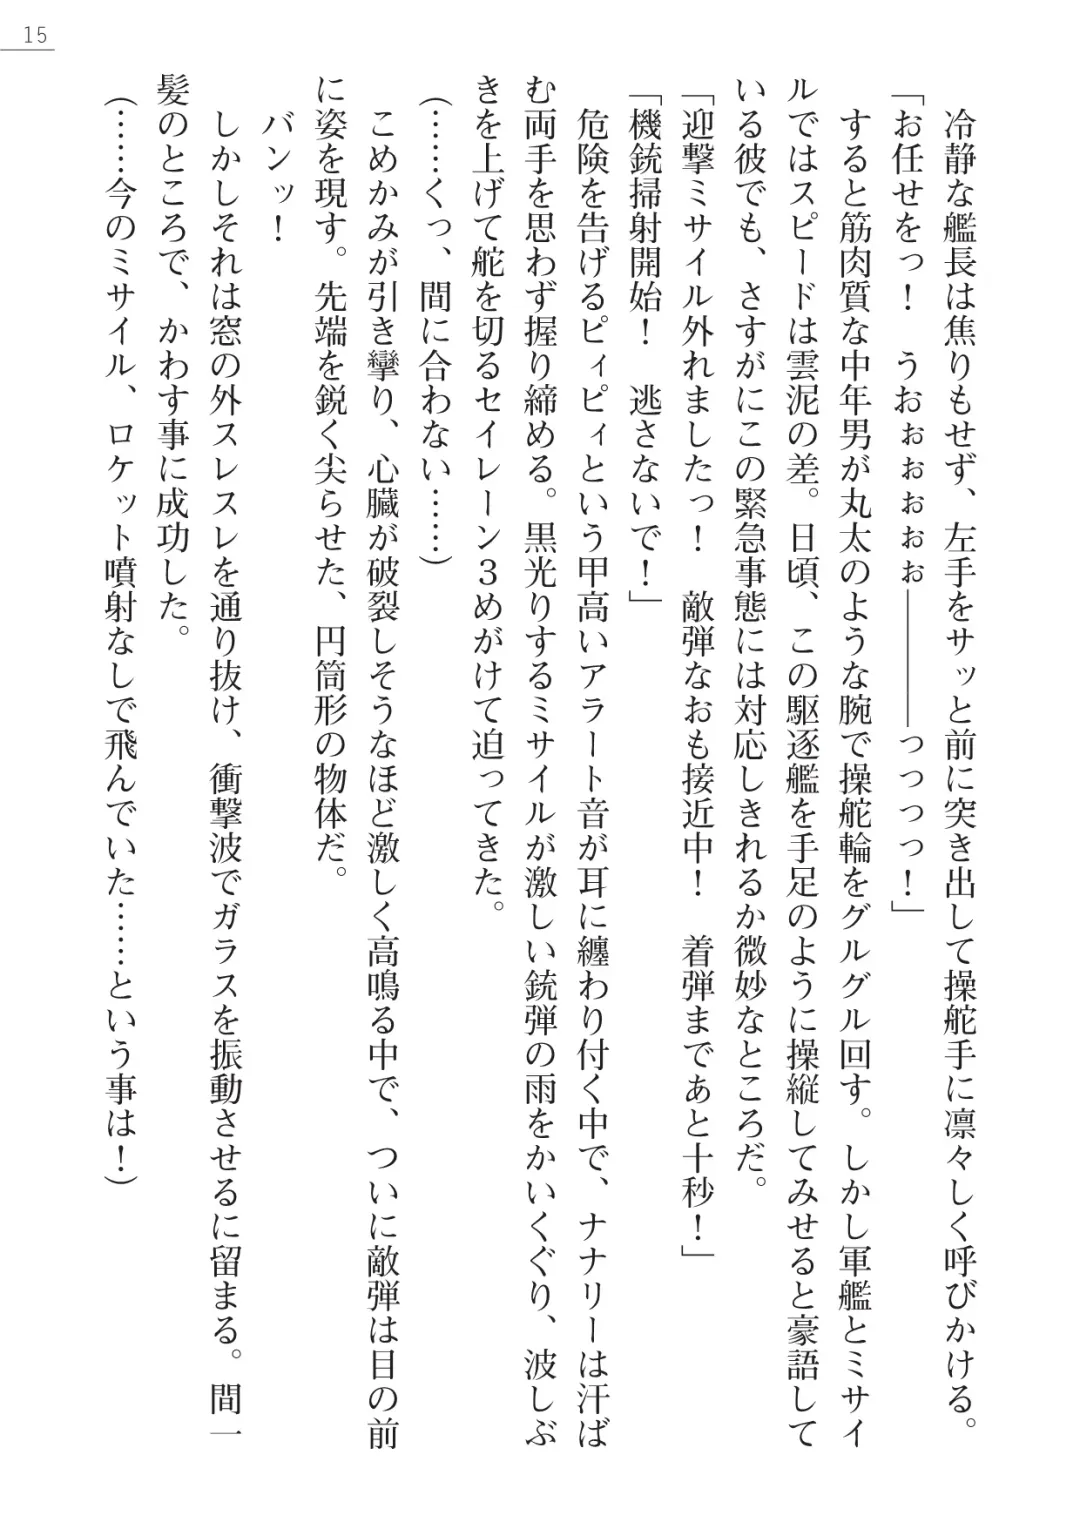 15
　冷静な艦長は焦りもせず、左手をサッと前に突き出して操舵手に凛々しく呼びかける。
「お任せをっ！　うおぉぉぉぉぉ――――っっっっ！」
　すると筋肉質な中年男が丸太のような腕で操舵輪をグルグル回す。しかし軍艦とミサイ
ルではスピードは雲泥の差。日頃、この駆逐艦を手足のように操縦してみせると豪語して
いる彼でも、さすがにこの緊急事態には対応しきれるか微妙なところだ。
「迎撃ミサイル外れましたっ！　敵弾なおも接近中！　着弾まであと十秒！」
「機銃掃射開始！　逃さないで！」
　危険を告げるピィピィという甲高いアラート音が耳に纏わり付く中で、ナナリーは汗ば
む両手を思わず握り締める。黒光りするミサイルが激しい銃弾の雨をかいくぐり、波しぶ
きを上げて舵を切るセイレーン３めがけて迫ってきた。
（……くっ、間に合わない……）
　こめかみが引き攣り、心臓が破裂しそうなほど激しく高鳴る中で、ついに敵弾は目の前
に姿を現す。先端を鋭く尖らせた、円筒形の物体だ。
　バンッ！
　しかしそれは窓の外スレスレを通り抜け、衝撃波でガラスを振動させるに留まる。間一
髪のところで、かわす事に成功した。
（……今のミサイル、ロケット噴射なしで飛んでいた……という事は！）